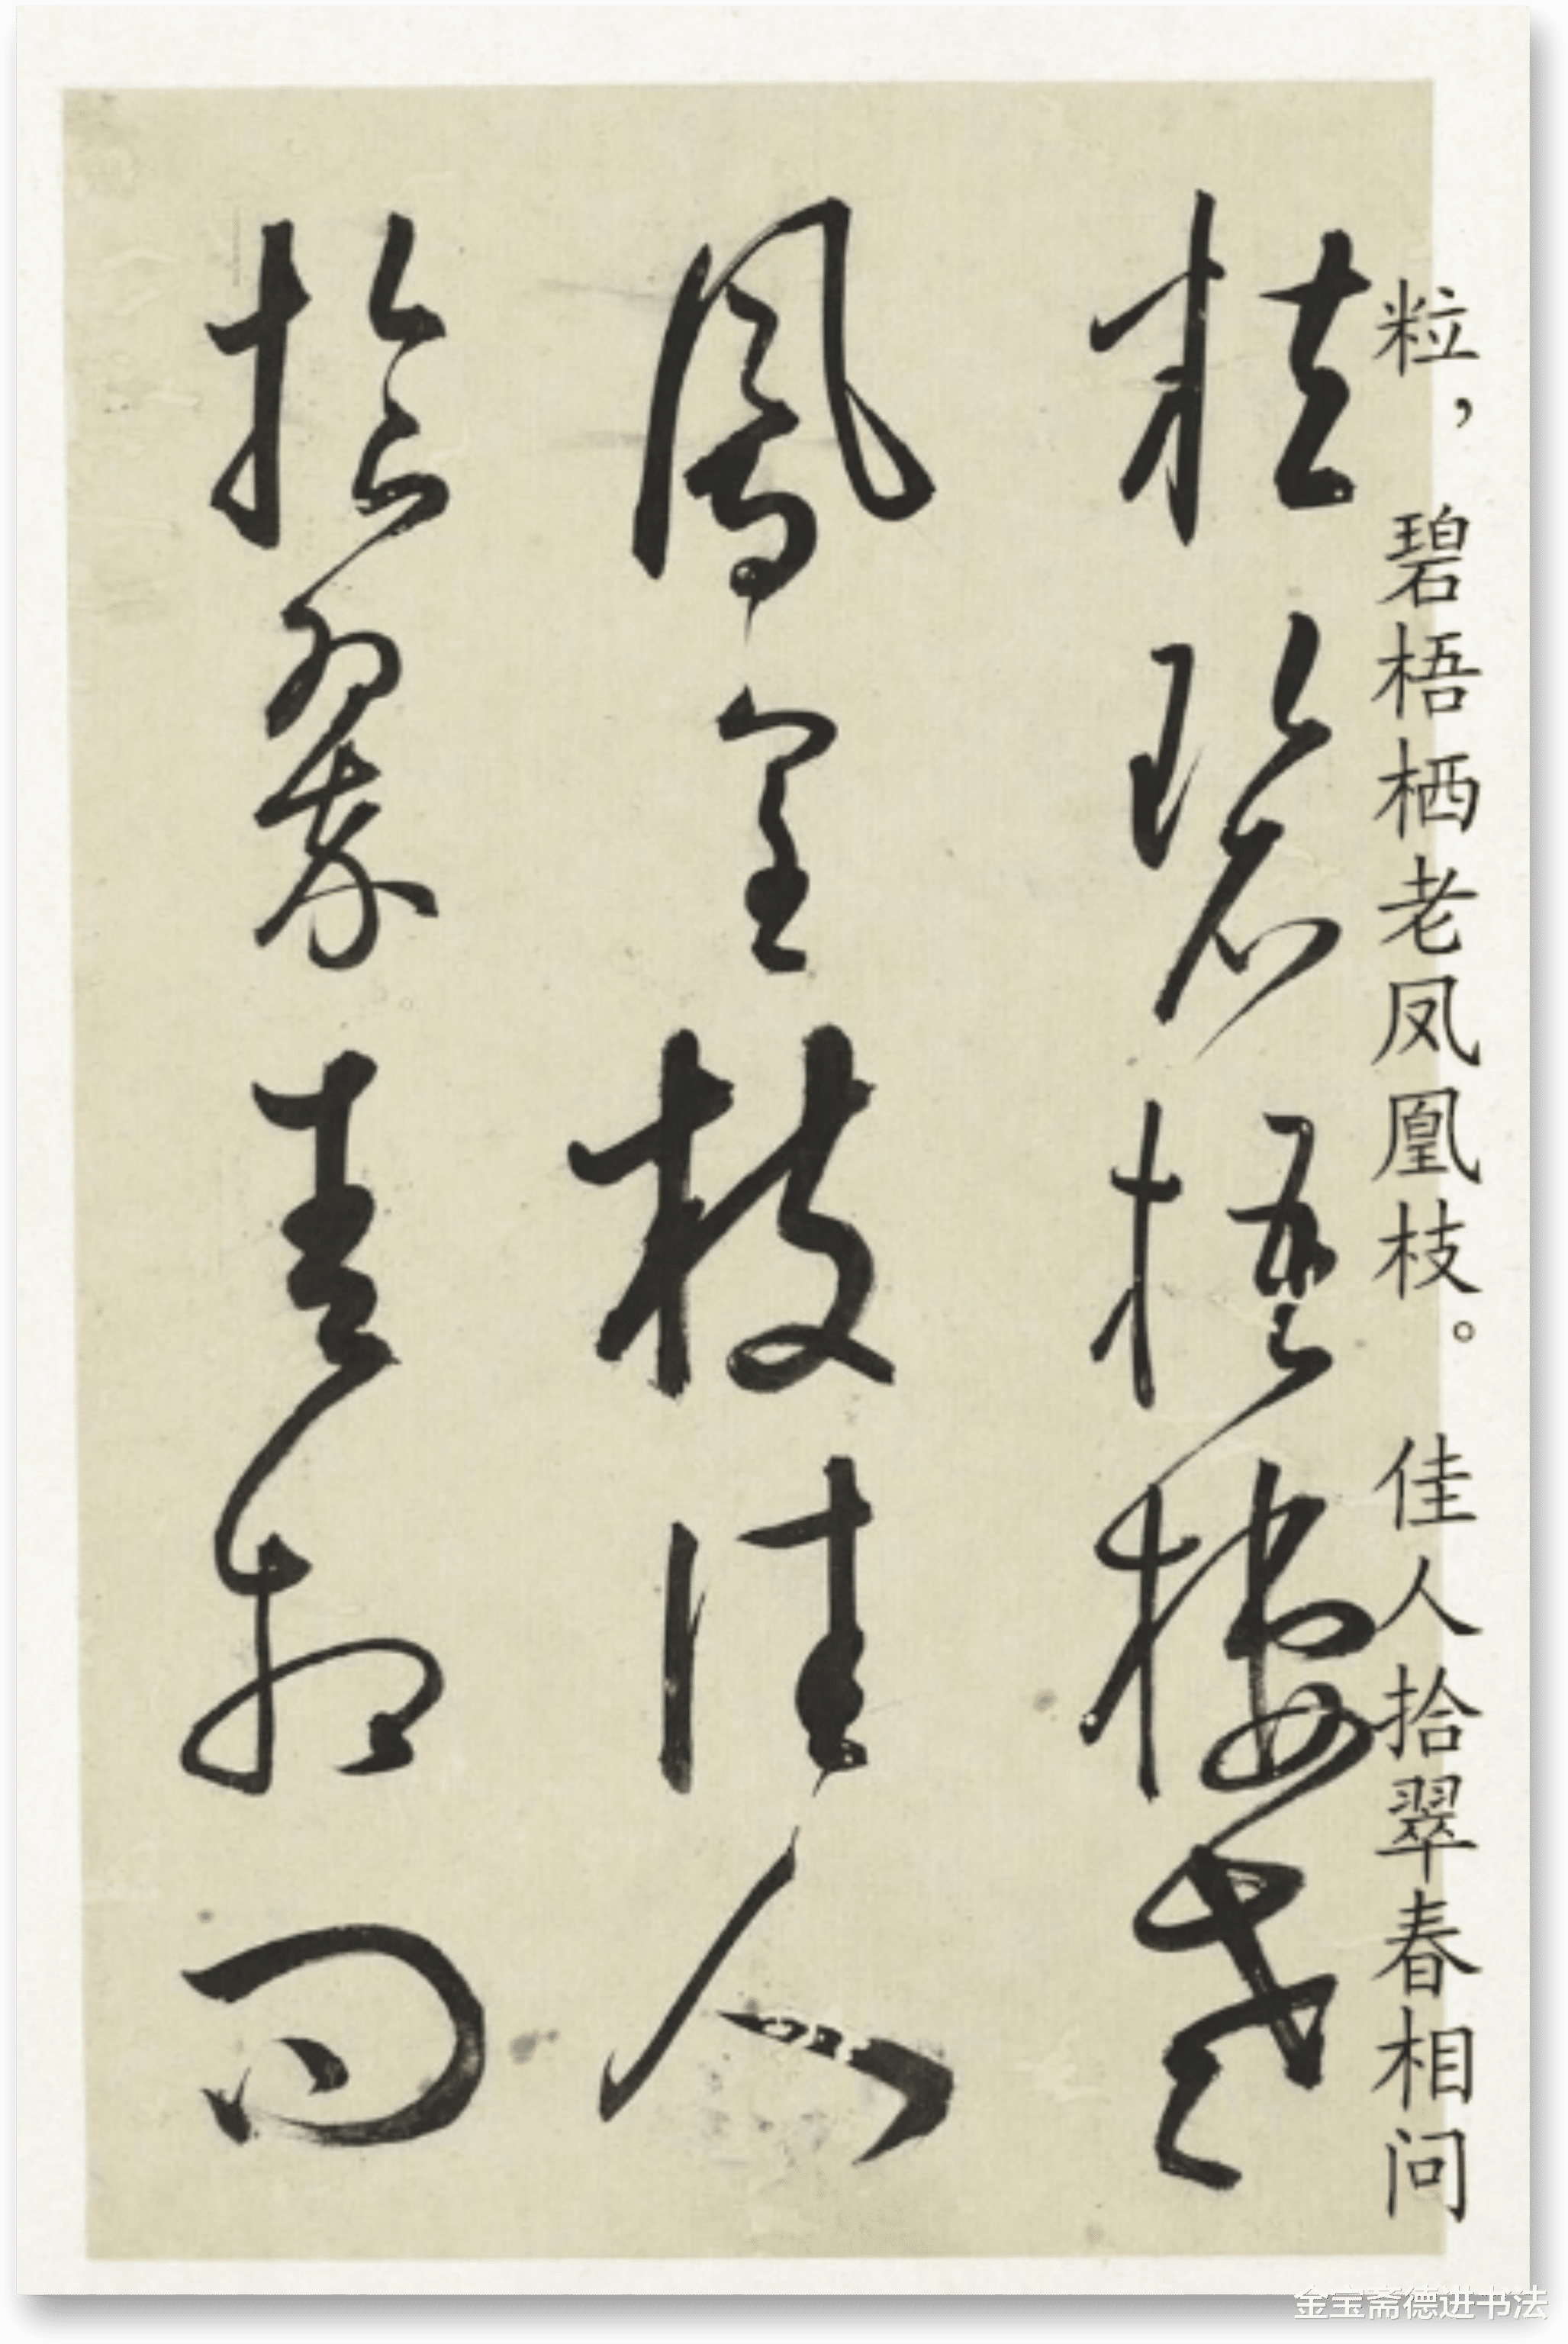 粒，碧梧栖老凤凰枝。佳人拾翠春相问
粒碧梧棲老
鳳皇枝佳人
拾翠春相问
金宝斋德进书法